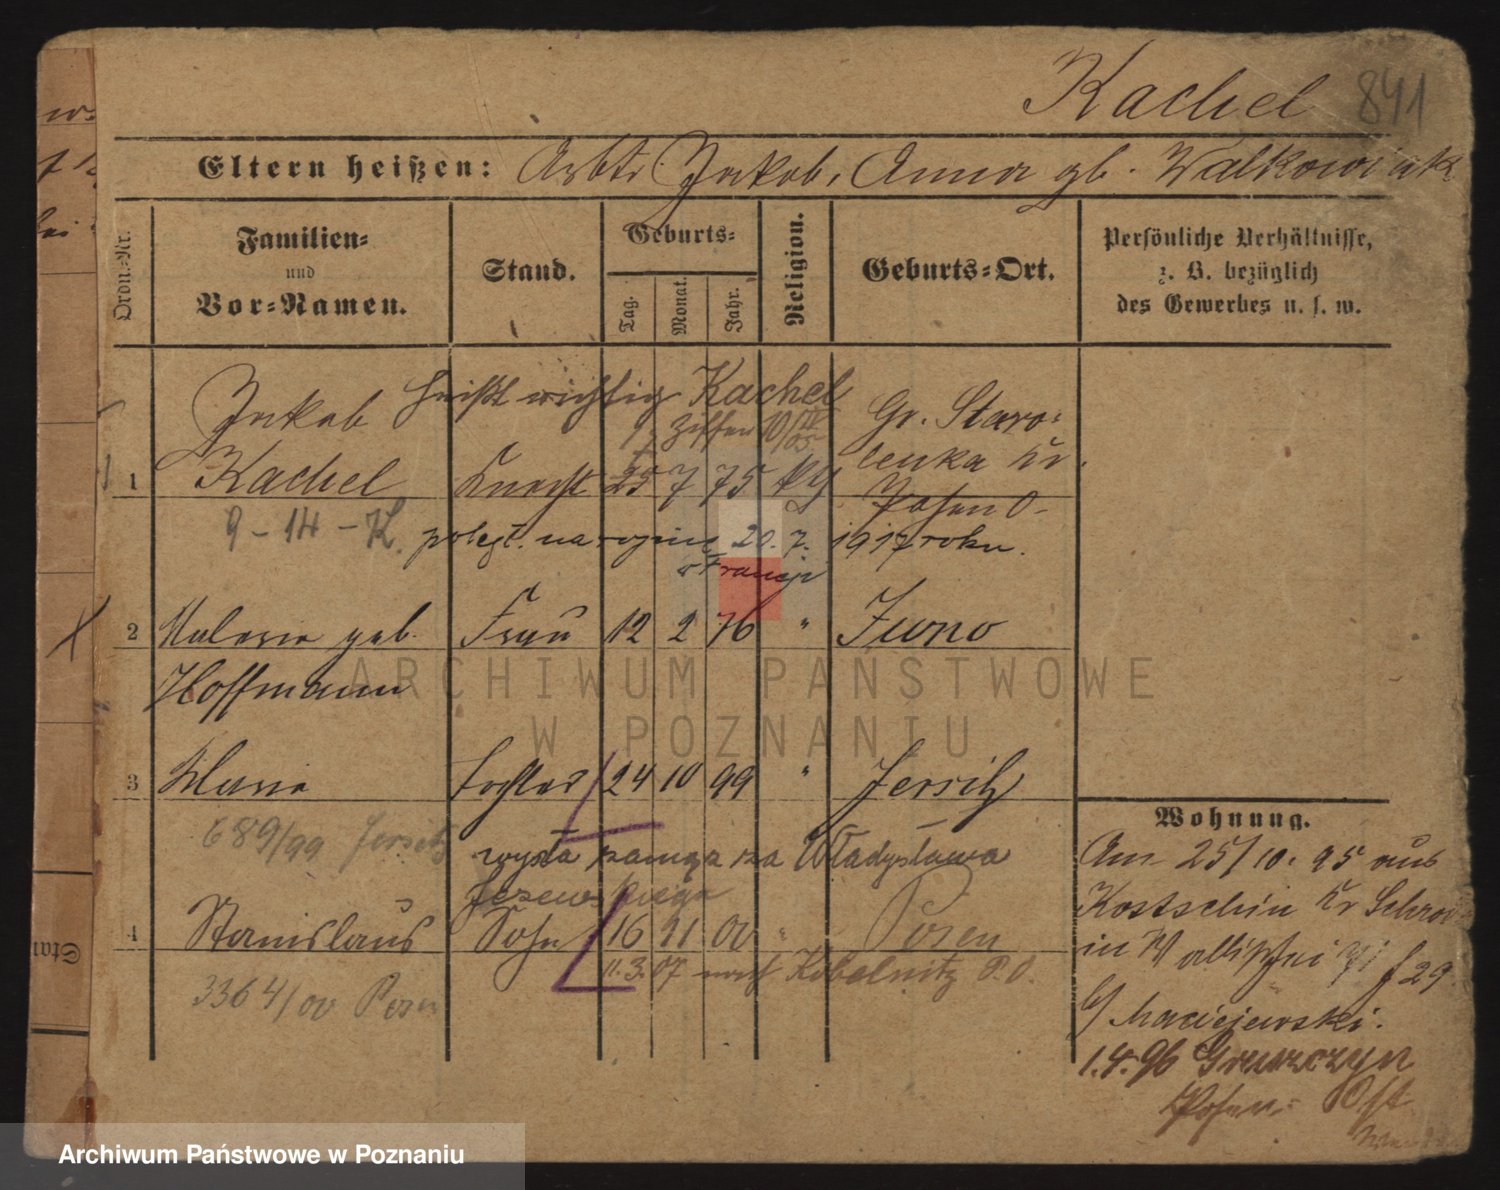 Kachel 841
Eltern heißen: Arbtr Jakob, Anna gb. Walkowiak
Ordn.-Nr.
Familien-
und
Vor-Namen.
Stand.
Geburts-
Tag.
Monat.
Jahr.
Religion.
Geburts-Ort.
Persönliche Verhältnisse,
z. B. bezüglich
des Gewerbes u. s. w.
Jakob heißt richtig Kachel
Gr. Staro-
1 Kachel Knecht 25 7 75 lenka Kr.
Posen O-
9-14-K. 20. 7. 1917 roku.
w Francji
2 geb. Frau 12 2 76 " Zuno
Hoffmann
3 Maria Tochter 24 10 99 " Jersitz
689/99 Jersitz
wyszła zamąż za Władysława
4 Stanislaus Sohn 16 11 00 " Posen
11.3.07 nach Kobelnitz P.O.
3364/00 Posen
Wohnung.
Am 25/10. 95 aus
Kostschin Kr Schrod
in f 29
b/ Maciejewski.
1.4.96 Gruszczyn
Posen Ost
Star
ARCHIWUM PAŃSTWOWE
W POZNANIU
Archiwum Państwowe w Poznaniu